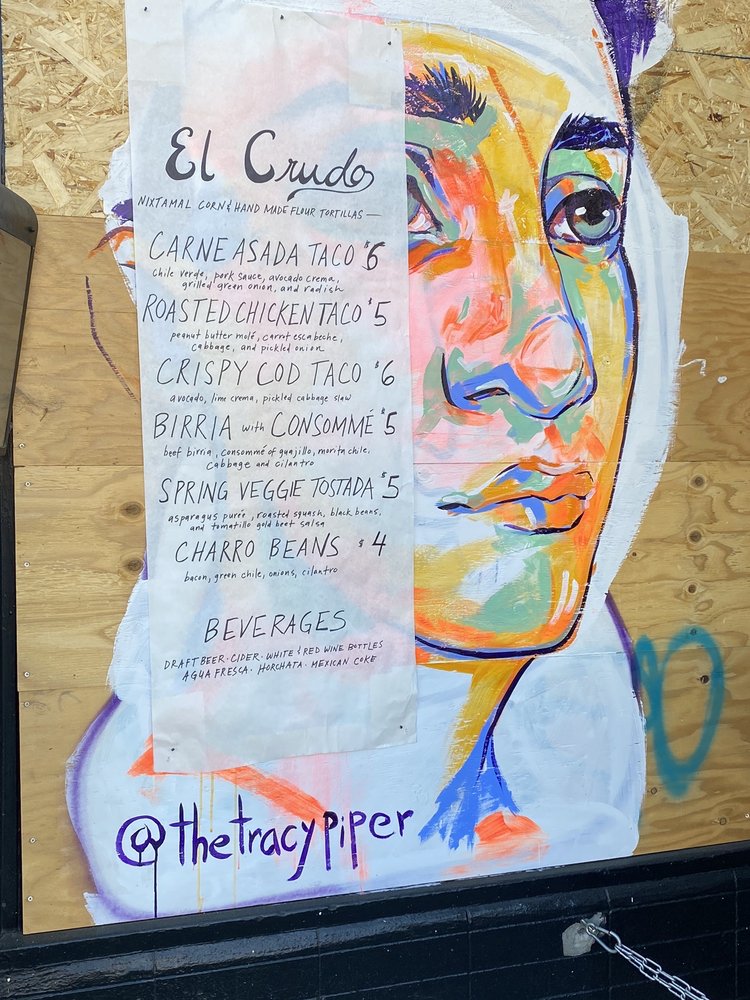 El Crudo
NIXTAMAL CORN & HAND MADE FLOUR TORTILLAS —
CARNE ASADA TACO $6
chile verde, pork sauce, avocado crema,
grilled green onion, and radish
ROASTED CHICKEN TACO $5
peanut butter molé, carrot escabeche,
cabbage, and pickled onion
CRISPY COD TACO $6
avocado, lime crema, pickled cabbage slaw
BIRRIA with CONSOMMÉ $5
beef birria, consommé of guajillo, morita chile,
cabbage and cilantro
SPRING VEGGIE TOSTADA $5
asparagus purée, roasted squash, black beans,
and tomatillo gold beet salsa
CHARRO BEANS $4
bacon, green chile, onions, cilantro
BEVERAGES
DRAFT BEER · CIDER · WHITE & RED WINE BOTTLES
AGUA FRESCA · HORCHATA · MEXICAN COKE
@thetracypiper